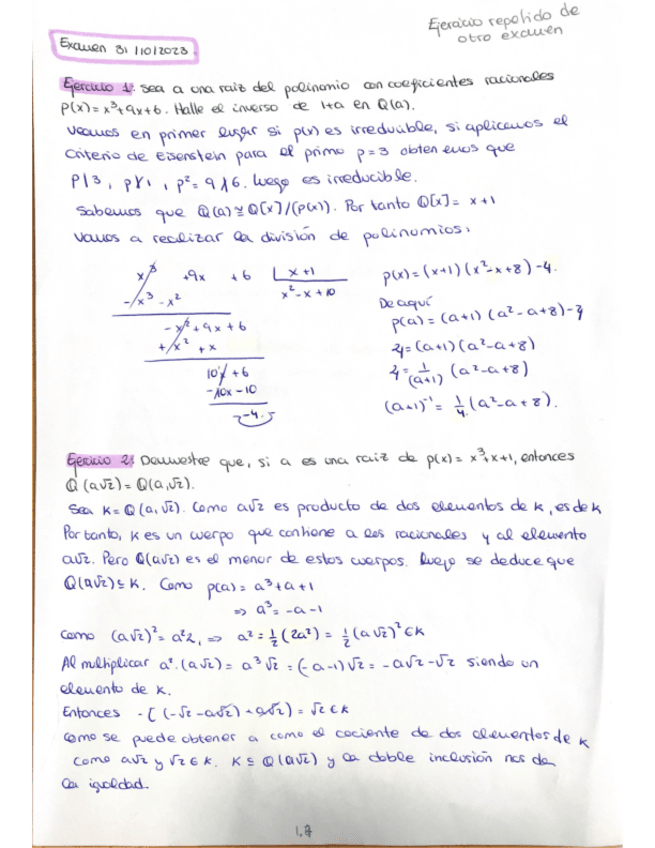 Ejercicio repetido de
otro examen
Examen 31/10/2023
Ejercicio 1: Sea a una raiz del polinomio con coeficientes racionales
p(x)=x³+9x+6. Halle el inverso de 1+a en Q(a).
Veamos en primer lugar si p(x) es irreducible, si aplicamos el
criterio de Eisenstein para el primo p=3 obtenemos que
p|3, p∤1, p²=9∤6. Luego es irreducible.
Sabemos que Q(a)≅Q[x]/(p(x)). Por tanto Q[x]= x+1
Vamos a realizar la división de polinomios:
x³ +9x +6 | x+1
-x³ -x² x²-x+10
-x²+9x+6
+x²+x
10x+6
-10x-10
-4
p(x)=(x+1)(x²-x+8)-4.
De aquí
p(a)=(a+1)(a²-a+8)-4
4=(a+1)(a²-a+8)
4=1/(a+1) (a²-a+8)
(a+1)⁻¹=1/4(a²-a+8).
Ejercicio 2: Demuestre que, si a es una raiz de p(x)=x³+x+1, entonces
Q(a√2)=Q(a,√2).
Sea K=Q(a,√2). Como a√2 es producto de dos elementos de K, es de K
Por tanto, K es un cuerpo que contiene a los racionales y al elemento
a√2. Pero Q(a√2) es el menor de estos cuerpos. Luego se deduce que
Q(a√2)⊆K. Como p(a)=a³+a+1
⇒ a³=-a-1
Como (a√2)²=a²2, ⇒ a²=1/2(2a²)=1/2(a√2)²∈K
Al multiplicar a²·(a√2)=a³√2=(-a-1)√2=-a√2-√2 siendo un
elemento de K.
Entonces -[(-√2-a√2)+a√2)=√2∈K
Como se puede obtener a como el cociente de dos elementos de K
como a√2 y √2∈K. K⊆Q(a√2) y la doble inclusión nos da
la igualdad.